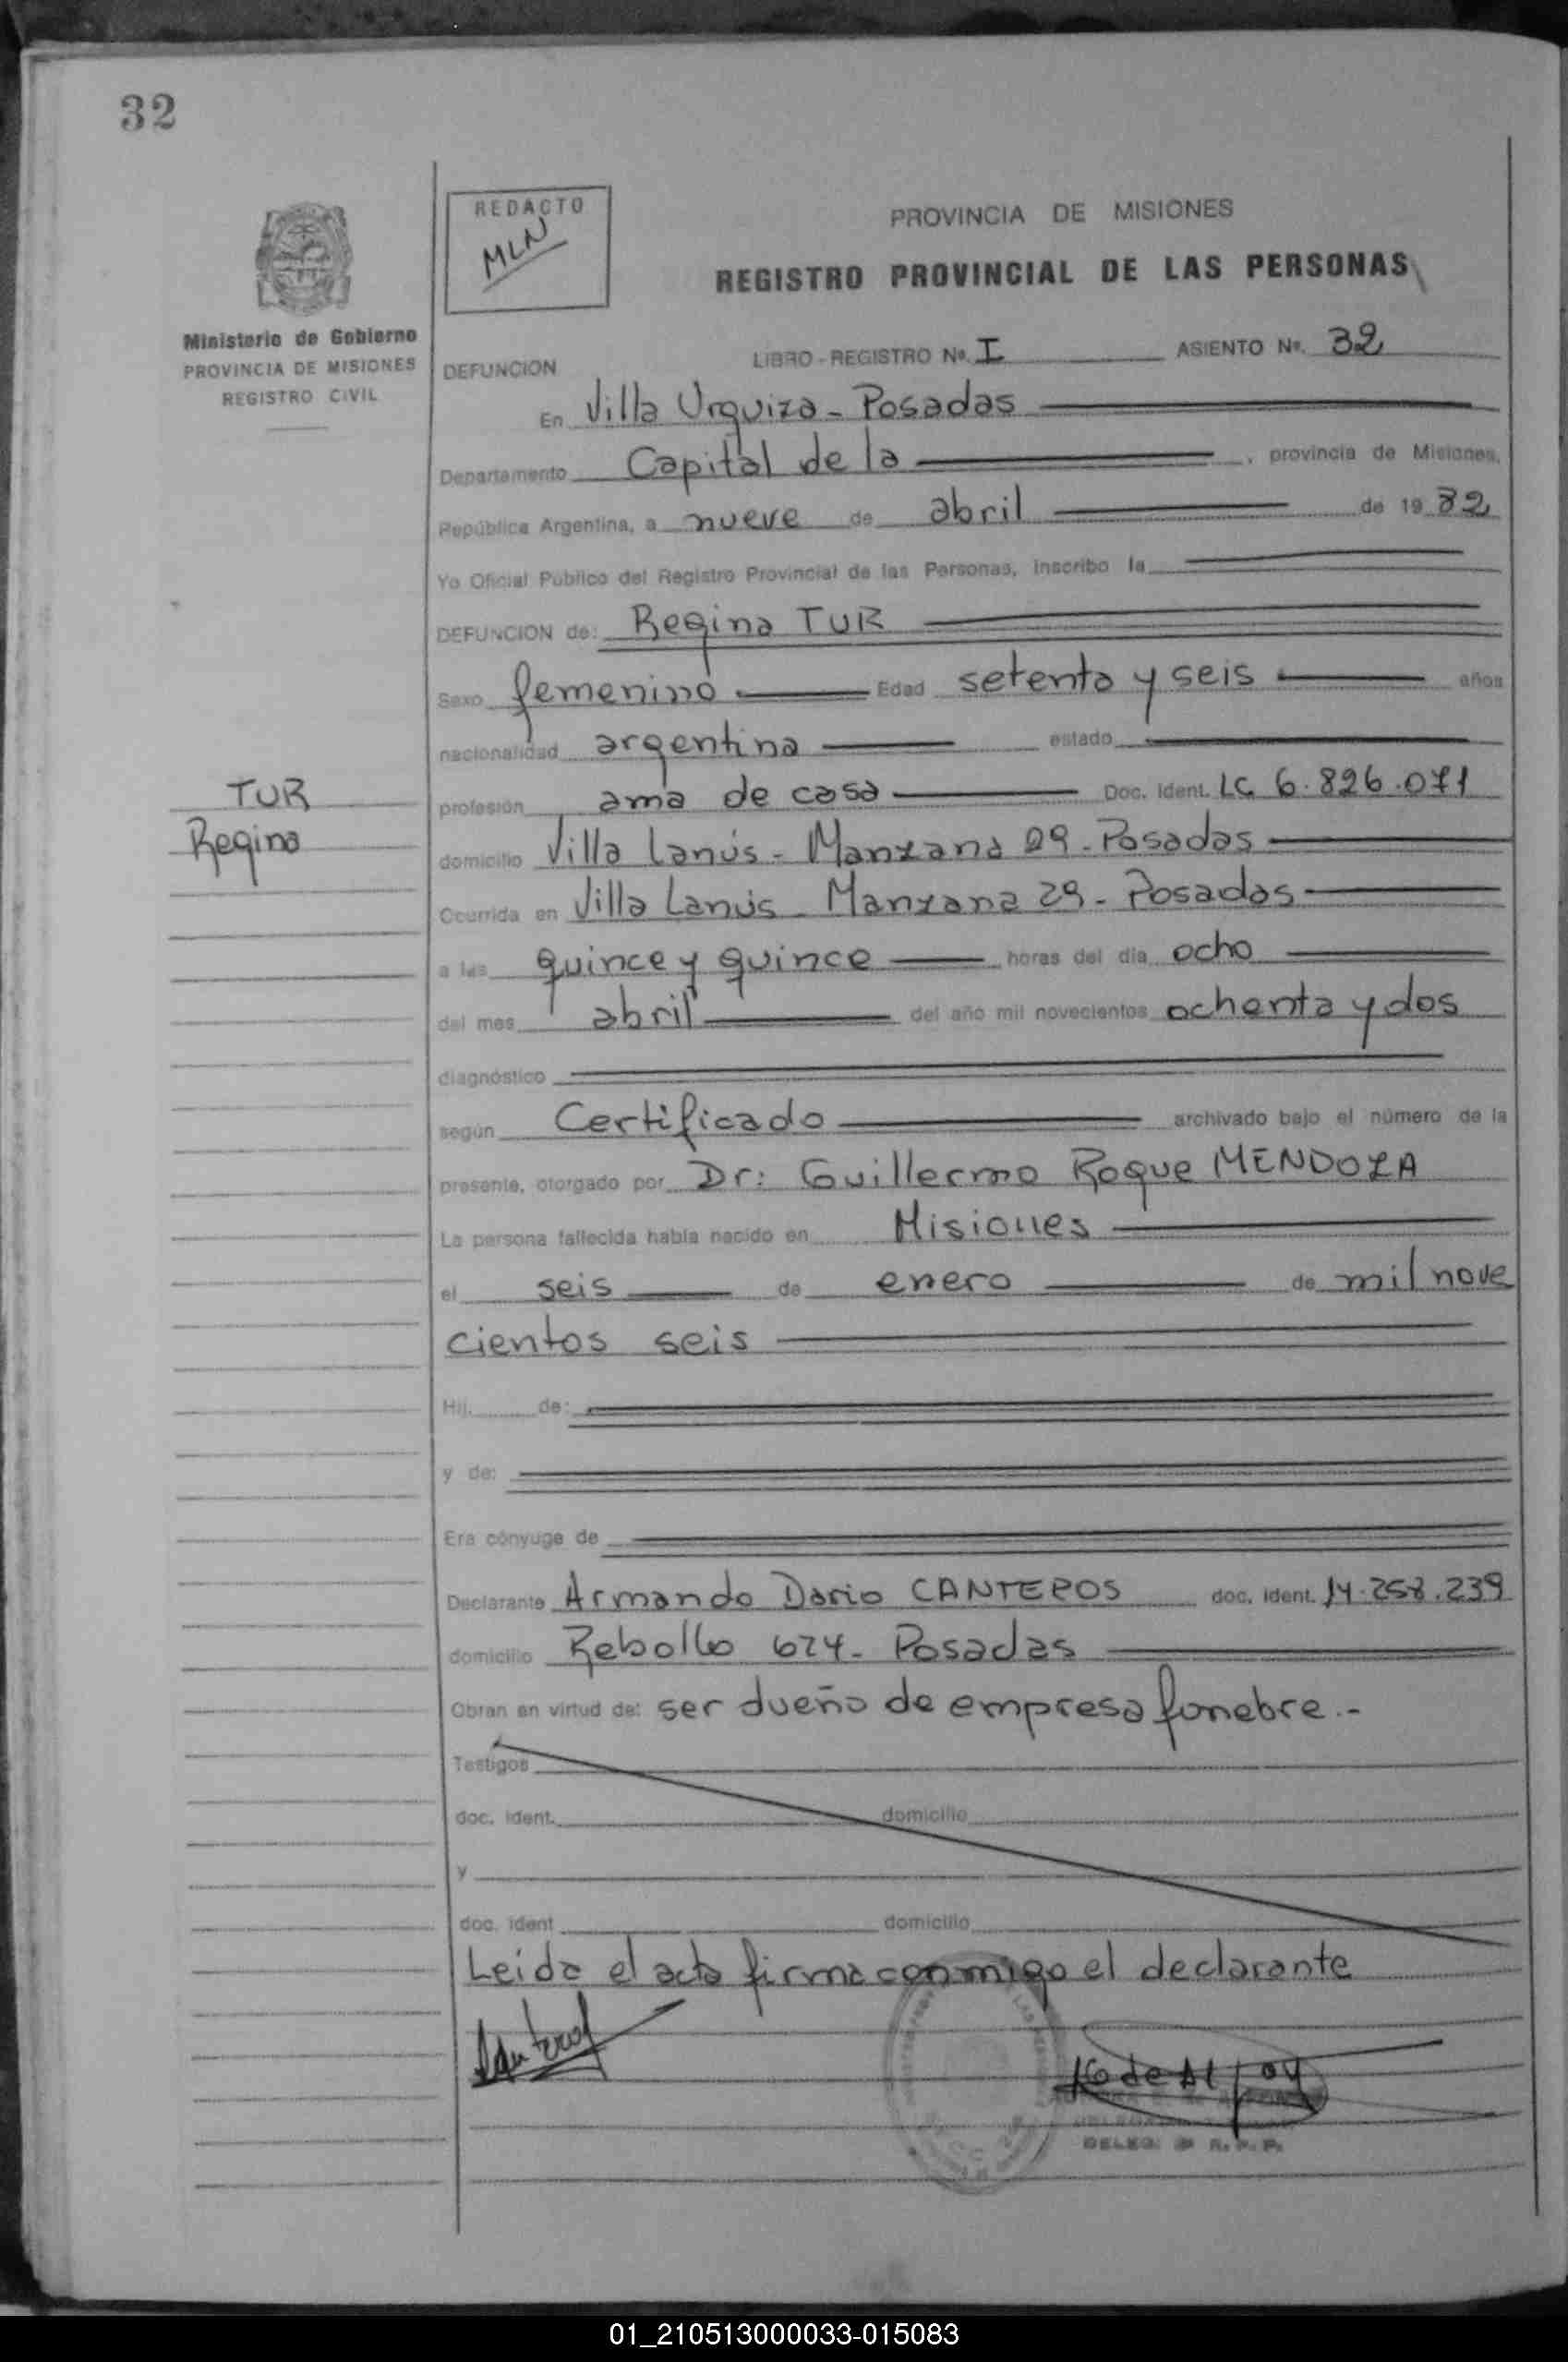 32
REDACTO
MLN
PROVINCIA DE MISIONES
REGISTRO PROVINCIAL DE LAS PERSONAS
Ministerio de Gobierno
PROVINCIA DE MISIONES
REGISTRO CIVIL
DEFUNCION LIBRO - REGISTRO Nº. I ASIENTO Nº. 32
En Villa Urquiza - Posadas
Departamento Capital de la , provincia de Misiones,
República Argentina, a nueve de abril de 19 82
Yo Oficial Público del Registro Provincial de las Personas, inscribo la
DEFUNCION de: Regina TUR
Sexo femenino Edad setenta y seis años
nacionalidad argentina estado
TUR
Regina
profesión ama de casa Doc. Ident. LC 6.826.071
domicilio Villa Lanús - Manzana 29 - Posadas
Ocurrida en Villa Lanús - Manzana 29 - Posadas
a las quince y quince horas del día ocho
del mes abril del año mil novecientos ochenta y dos
diagnóstico
según Certificado archivado bajo el número de la
presente, otorgado por Dr: Guillermo Roque MENDOZA
La persona fallecida había nacido en Misiones
el seis de enero de mil nove
cientos seis
Hij. de:
y de:
Era cónyuge de
Declarante Armando Dario CANTEROS doc. ident. 14.258.239
domicilio Rebollo 674 - Posadas
Obran en virtud de: ser dueño de empresa fonebre.-
Testigos
doc. ident. domicilio
y
doc. ident domicilio
Leida el acta firma conmigo el declarante
DELEG. R. P. P.
01_210513000033-015083